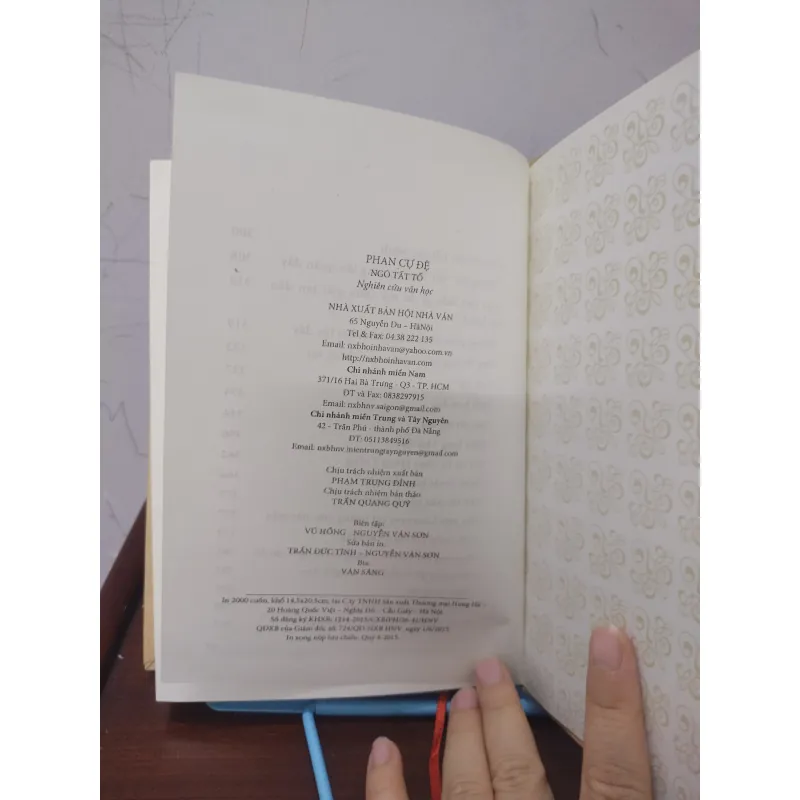 PHAN CỰ ĐỆ
NGÔ TẤT TỐ
Nghiên cứu văn học
NHÀ XUẤT BẢN HỘI NHÀ VĂN
65 Nguyễn Du – HàNội
Tel & Fax: 04 38 222 135
Email: nxbhoinhavan@yahoo.com.vn
http://nxbhoinhavan.com
Chi nhánh miền Nam
371/16 Hai Bà Trưng - Q3 - TP. HCM
ĐT và Fax: 0838297915
Email: nxbhnv.saigon@gmail.com
Chi nhánh miền Trung và Tây Nguyên
42 - Trần Phú - thành phố Đà Nẵng
ĐT: 05113849516
Email: nxbhnv.mientrungtaynguyen@gmail.com
Chịu trách nhiệm xuất bản
PHẠM TRUNG ĐỈNH
Chịu trách nhiệm bản thảo
TRẦN QUANG QUÝ
Biên tập:
VŨ HỒNG - NGUYỄN VĂN SƠN
Sửa bản in:
TRẦN ĐỨC TĨNH – NGUYỄN VĂN SƠN
Bìa:
VĂN SÁNG
In 2000 cuốn, khổ 14,5x20,5cm, tại C.ty TNHH Sản xuất Thương mại
20 Hoàng Quốc Việt - Nghĩa Đô - Cầu Giấy - Hà Nội
Số đăng ký KHXB:
QĐXB của Giám đốc số:
In xong nộp lưu chiểu, Quý